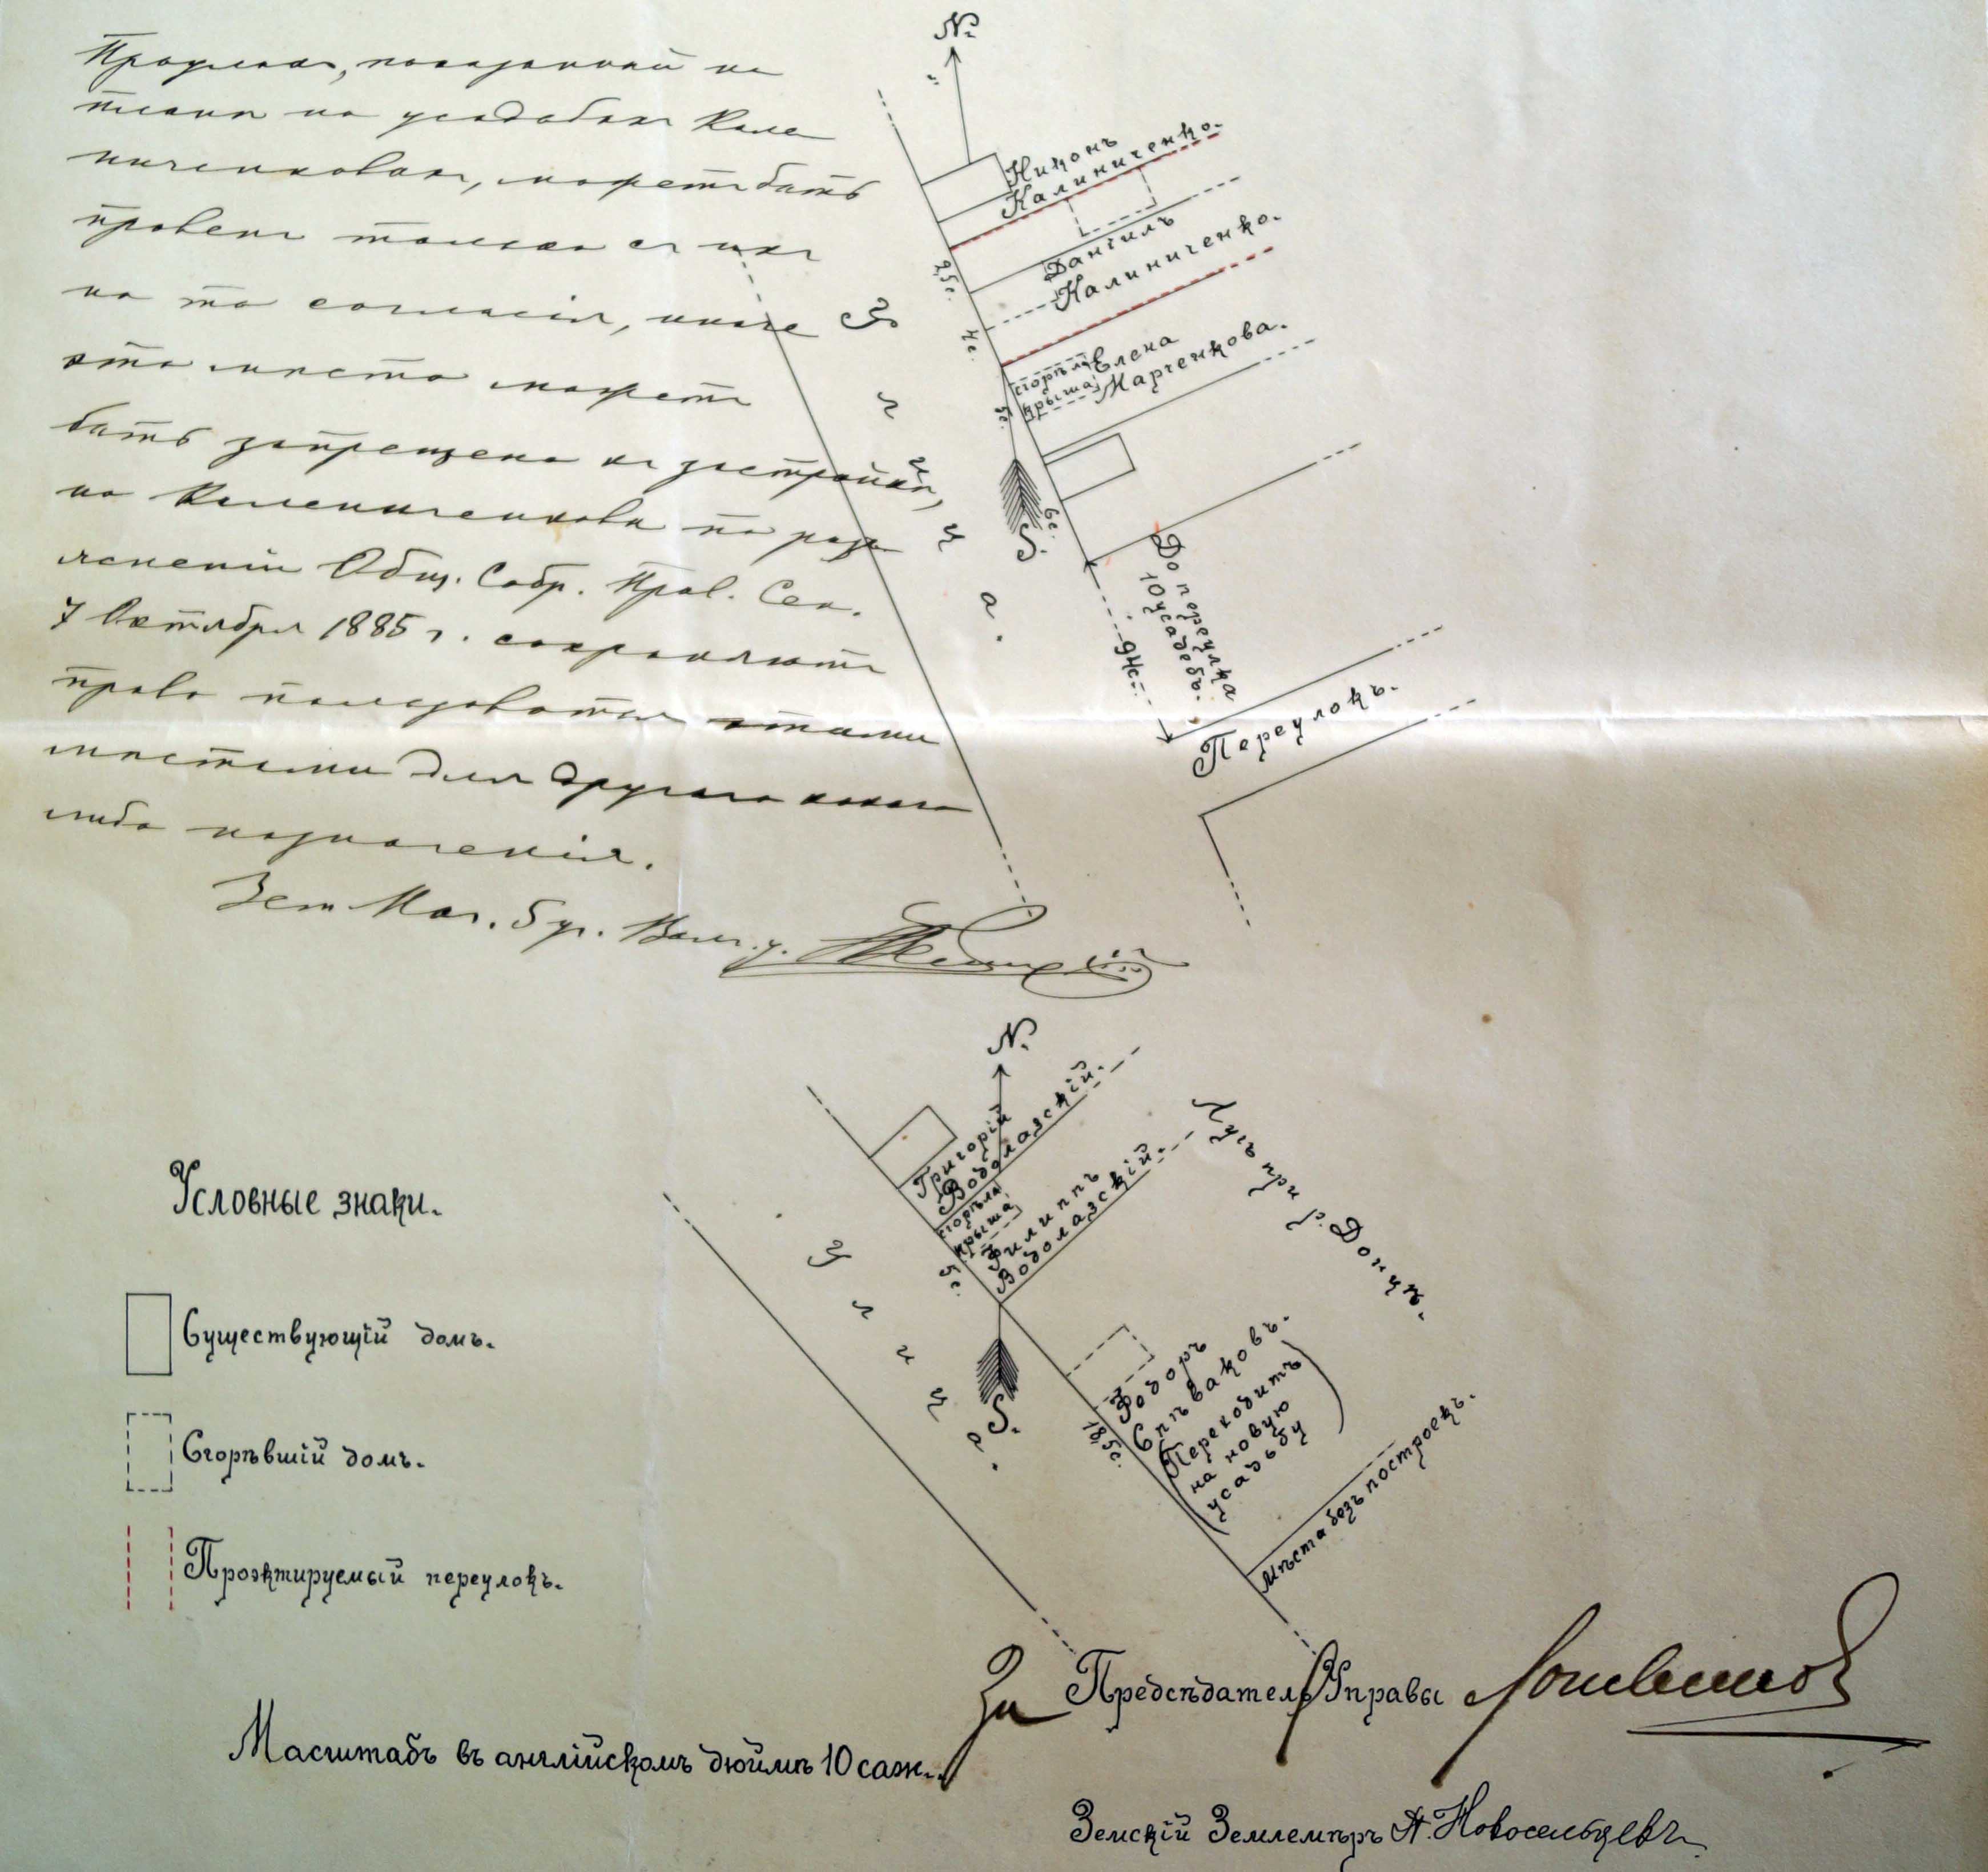 Проулокъ, показанный на
планѣ на усадьбахъ Кале
ниченковыхъ, можетъ быть
проведенъ только съ ихъ
на то согласія, иначе
это мѣсто можетъ
быть запрещено къ застройкѣ,
но Калениченковы по разъ
ясненію Общ. Собр. Прав. Сен.
7 Октября 1885 г. сохраняютъ
право пользоваться этими
мѣстами для другого какого
либо назначенія.
Зем. Нач. 5 уч. Волч. у.
N.
Никонъ
Калиниченко.
2,5 с.
Даніилъ
Калиниченко.
4 с.
сгорѣла
крыша
Елена
Марченкова.
5 с.
6 с.
S.
Улица.
До переулка
10 усадебъ.
94 с.
Переулокъ.
N.
Григорій
Водолазскій.
сгорѣла
крыша
Филиппъ
Водолазскій.
5 с.
Улица.
S.
Лугъ при р. Донцѣ.
Ѳедоръ
Спѣваковъ.
(Переходитъ
на новую
усадьбу)
18,5 с.
Мѣста безъ построекъ.
Условные знаки.
Существующій домъ.
Сгорѣвшій домъ.
Проэктируемый переулокъ.
Масштабъ въ англійскомъ дюймѣ 10 саж.
За Предсѣдатель Управы
Земскій Землемѣръ А. Новосельцевъ